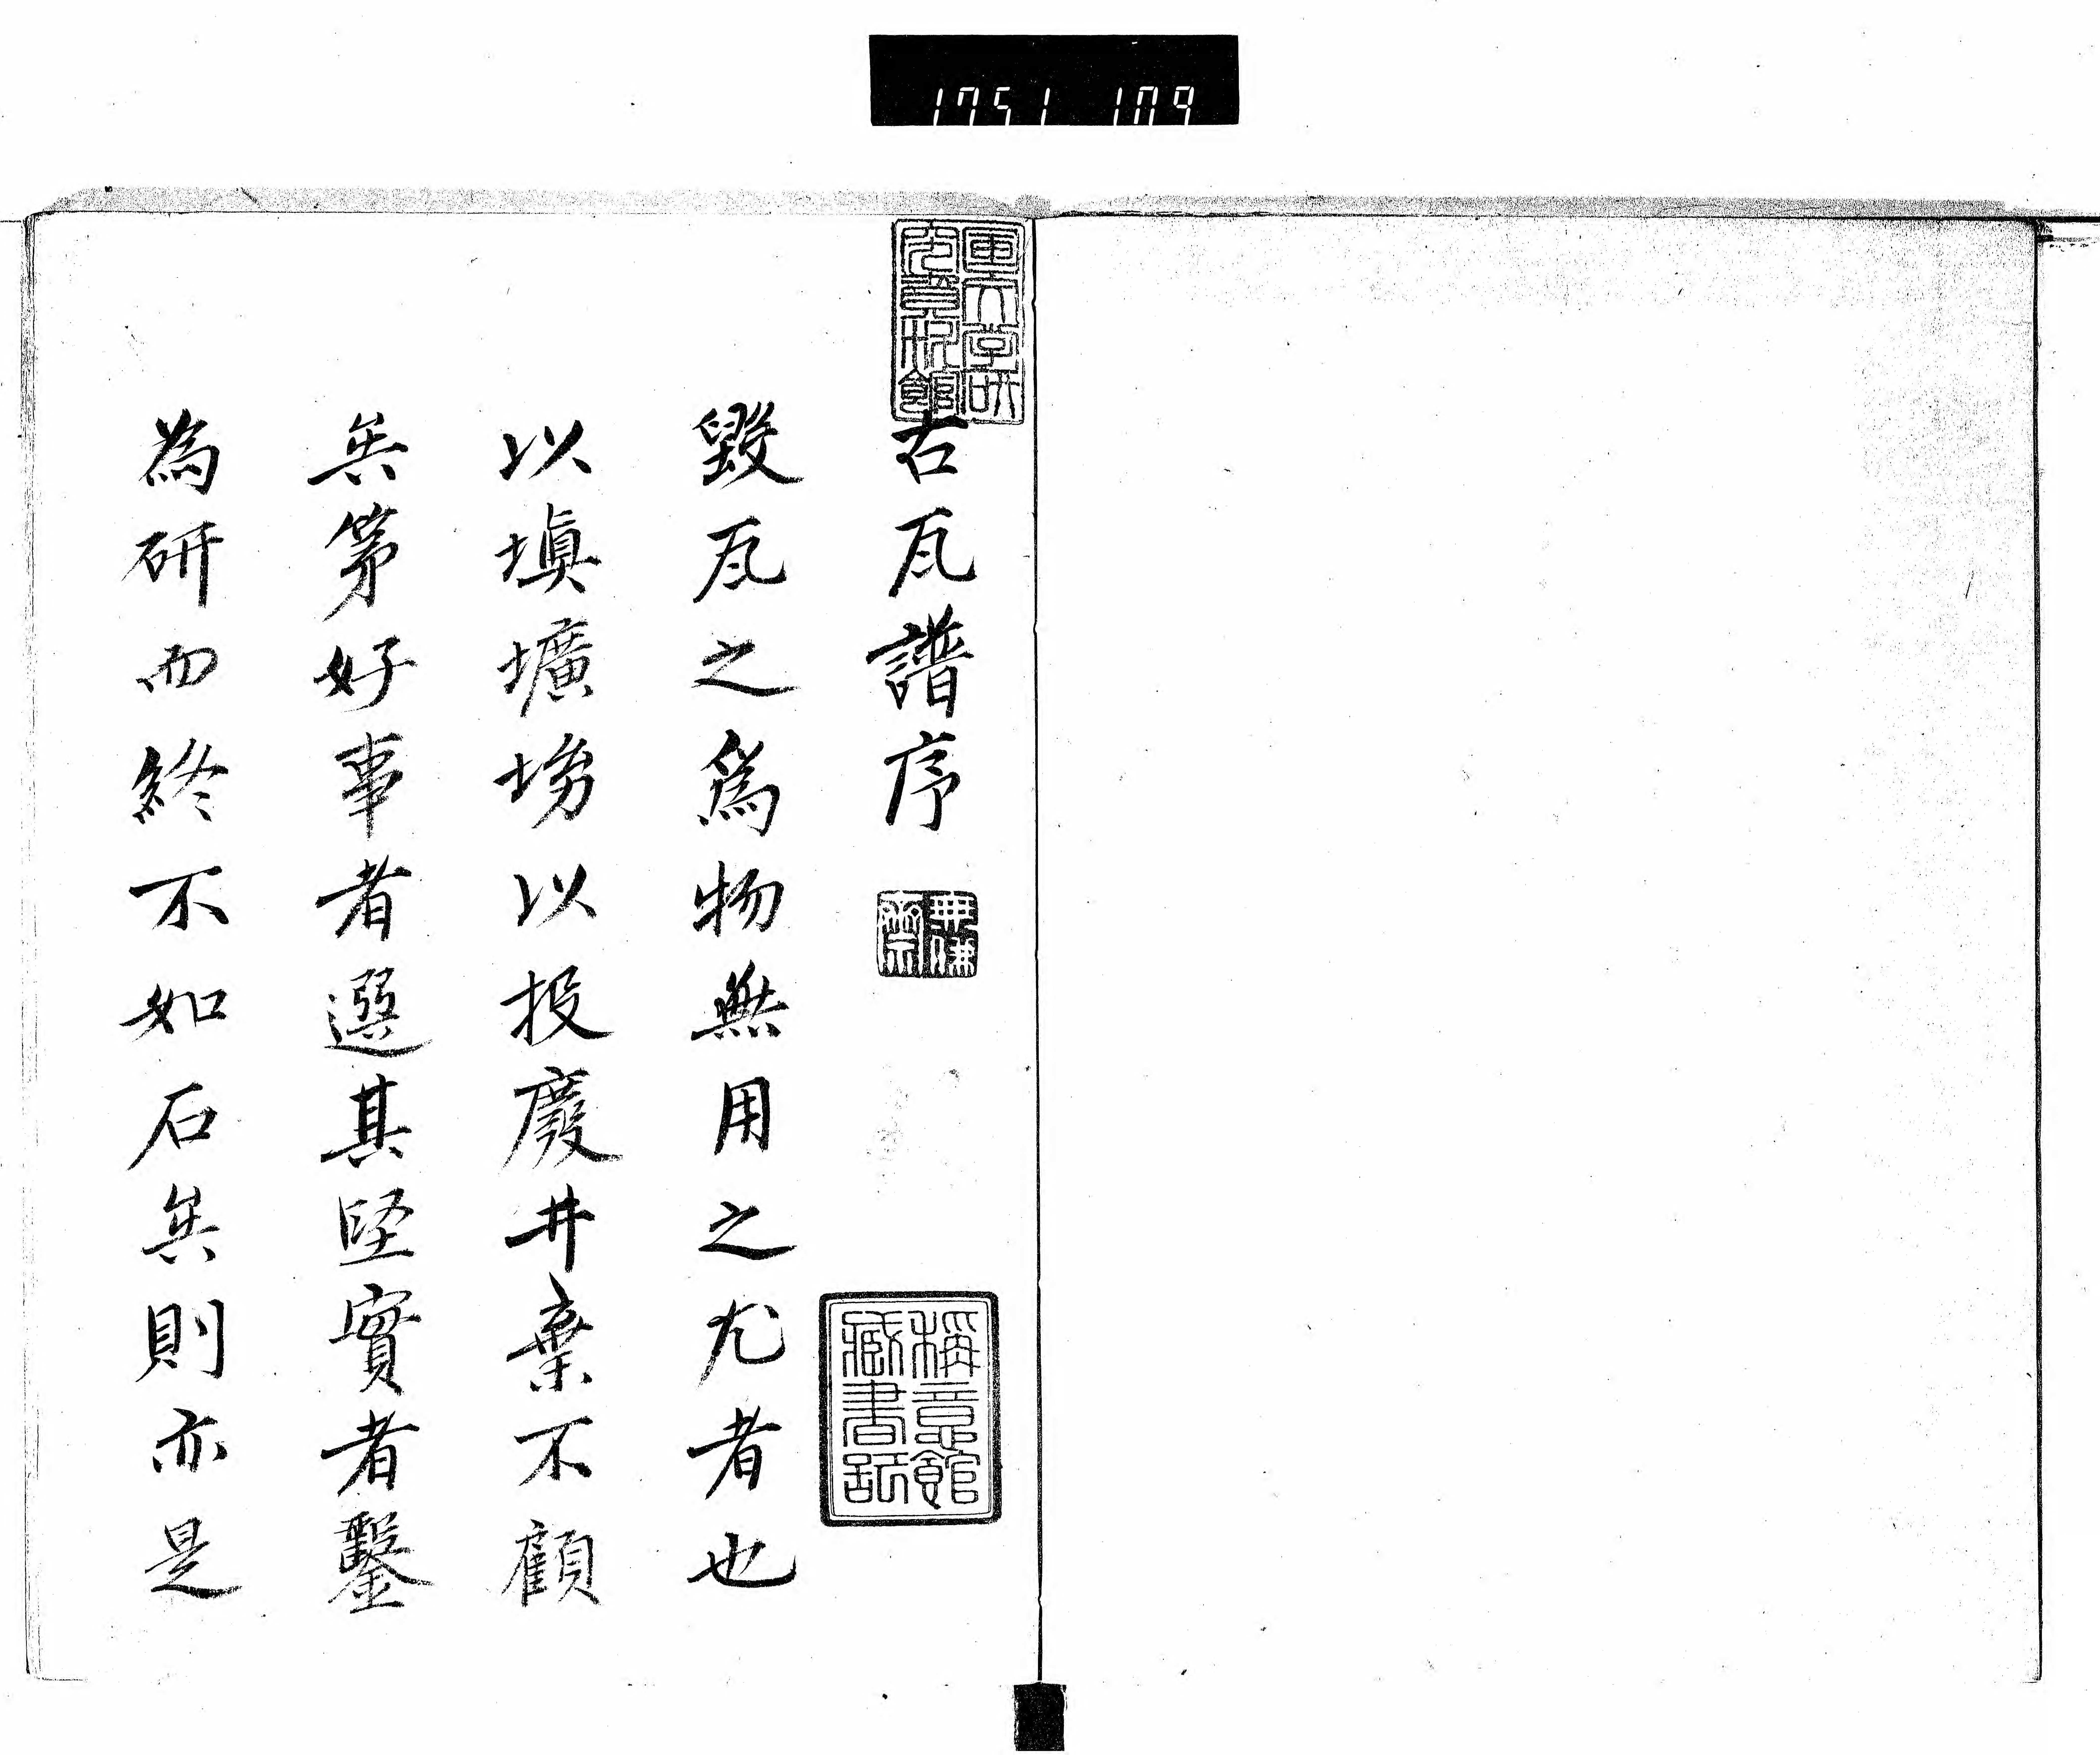 1751 109
国文学研
究資料館
古瓦譜序
稱意館
臧書記
毀瓦之爲物無用之尤者也
以塡壙以投廢井棄不顧
矣第好事者選其堅實者鑿
為研而終不如石矣則亦是